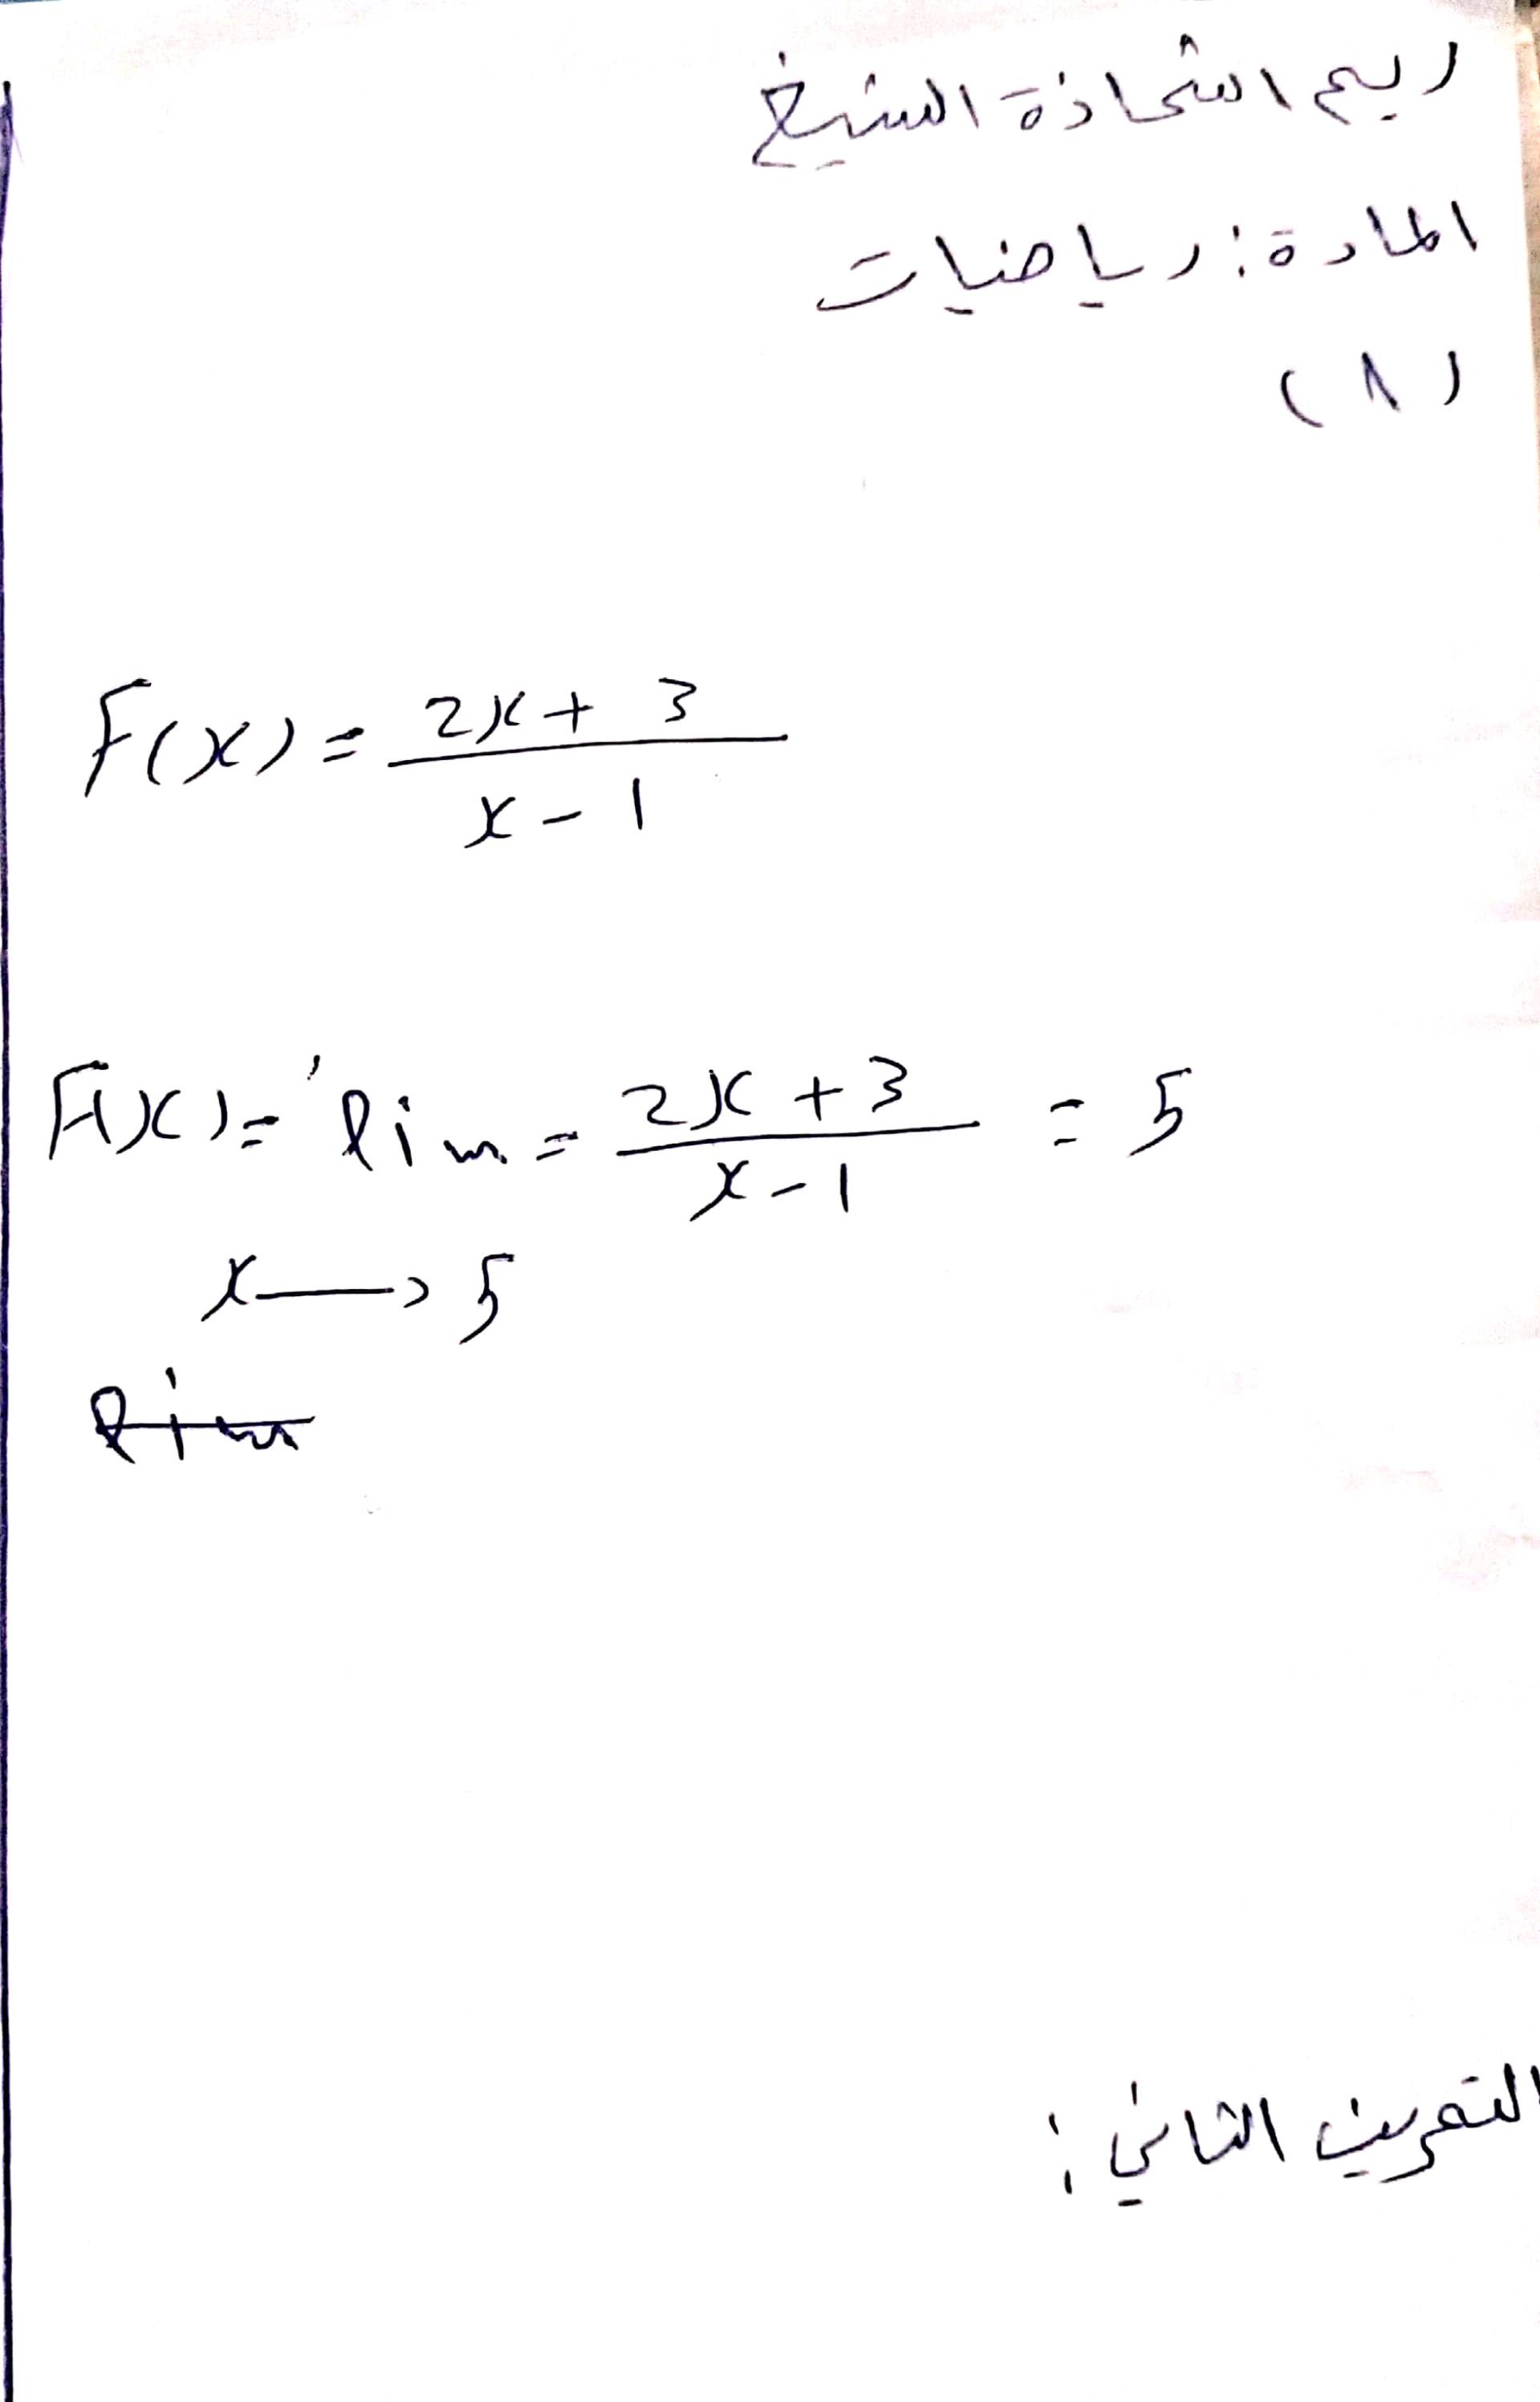 ريم الشحاذة الشيخ
المادة: رياضيات
(٨)
F(x) = 2x + 3 / x - 1
F(x) = lim = 2x + 3 / x - 1 = 5
x → 5
lim
التمرين الثاني: